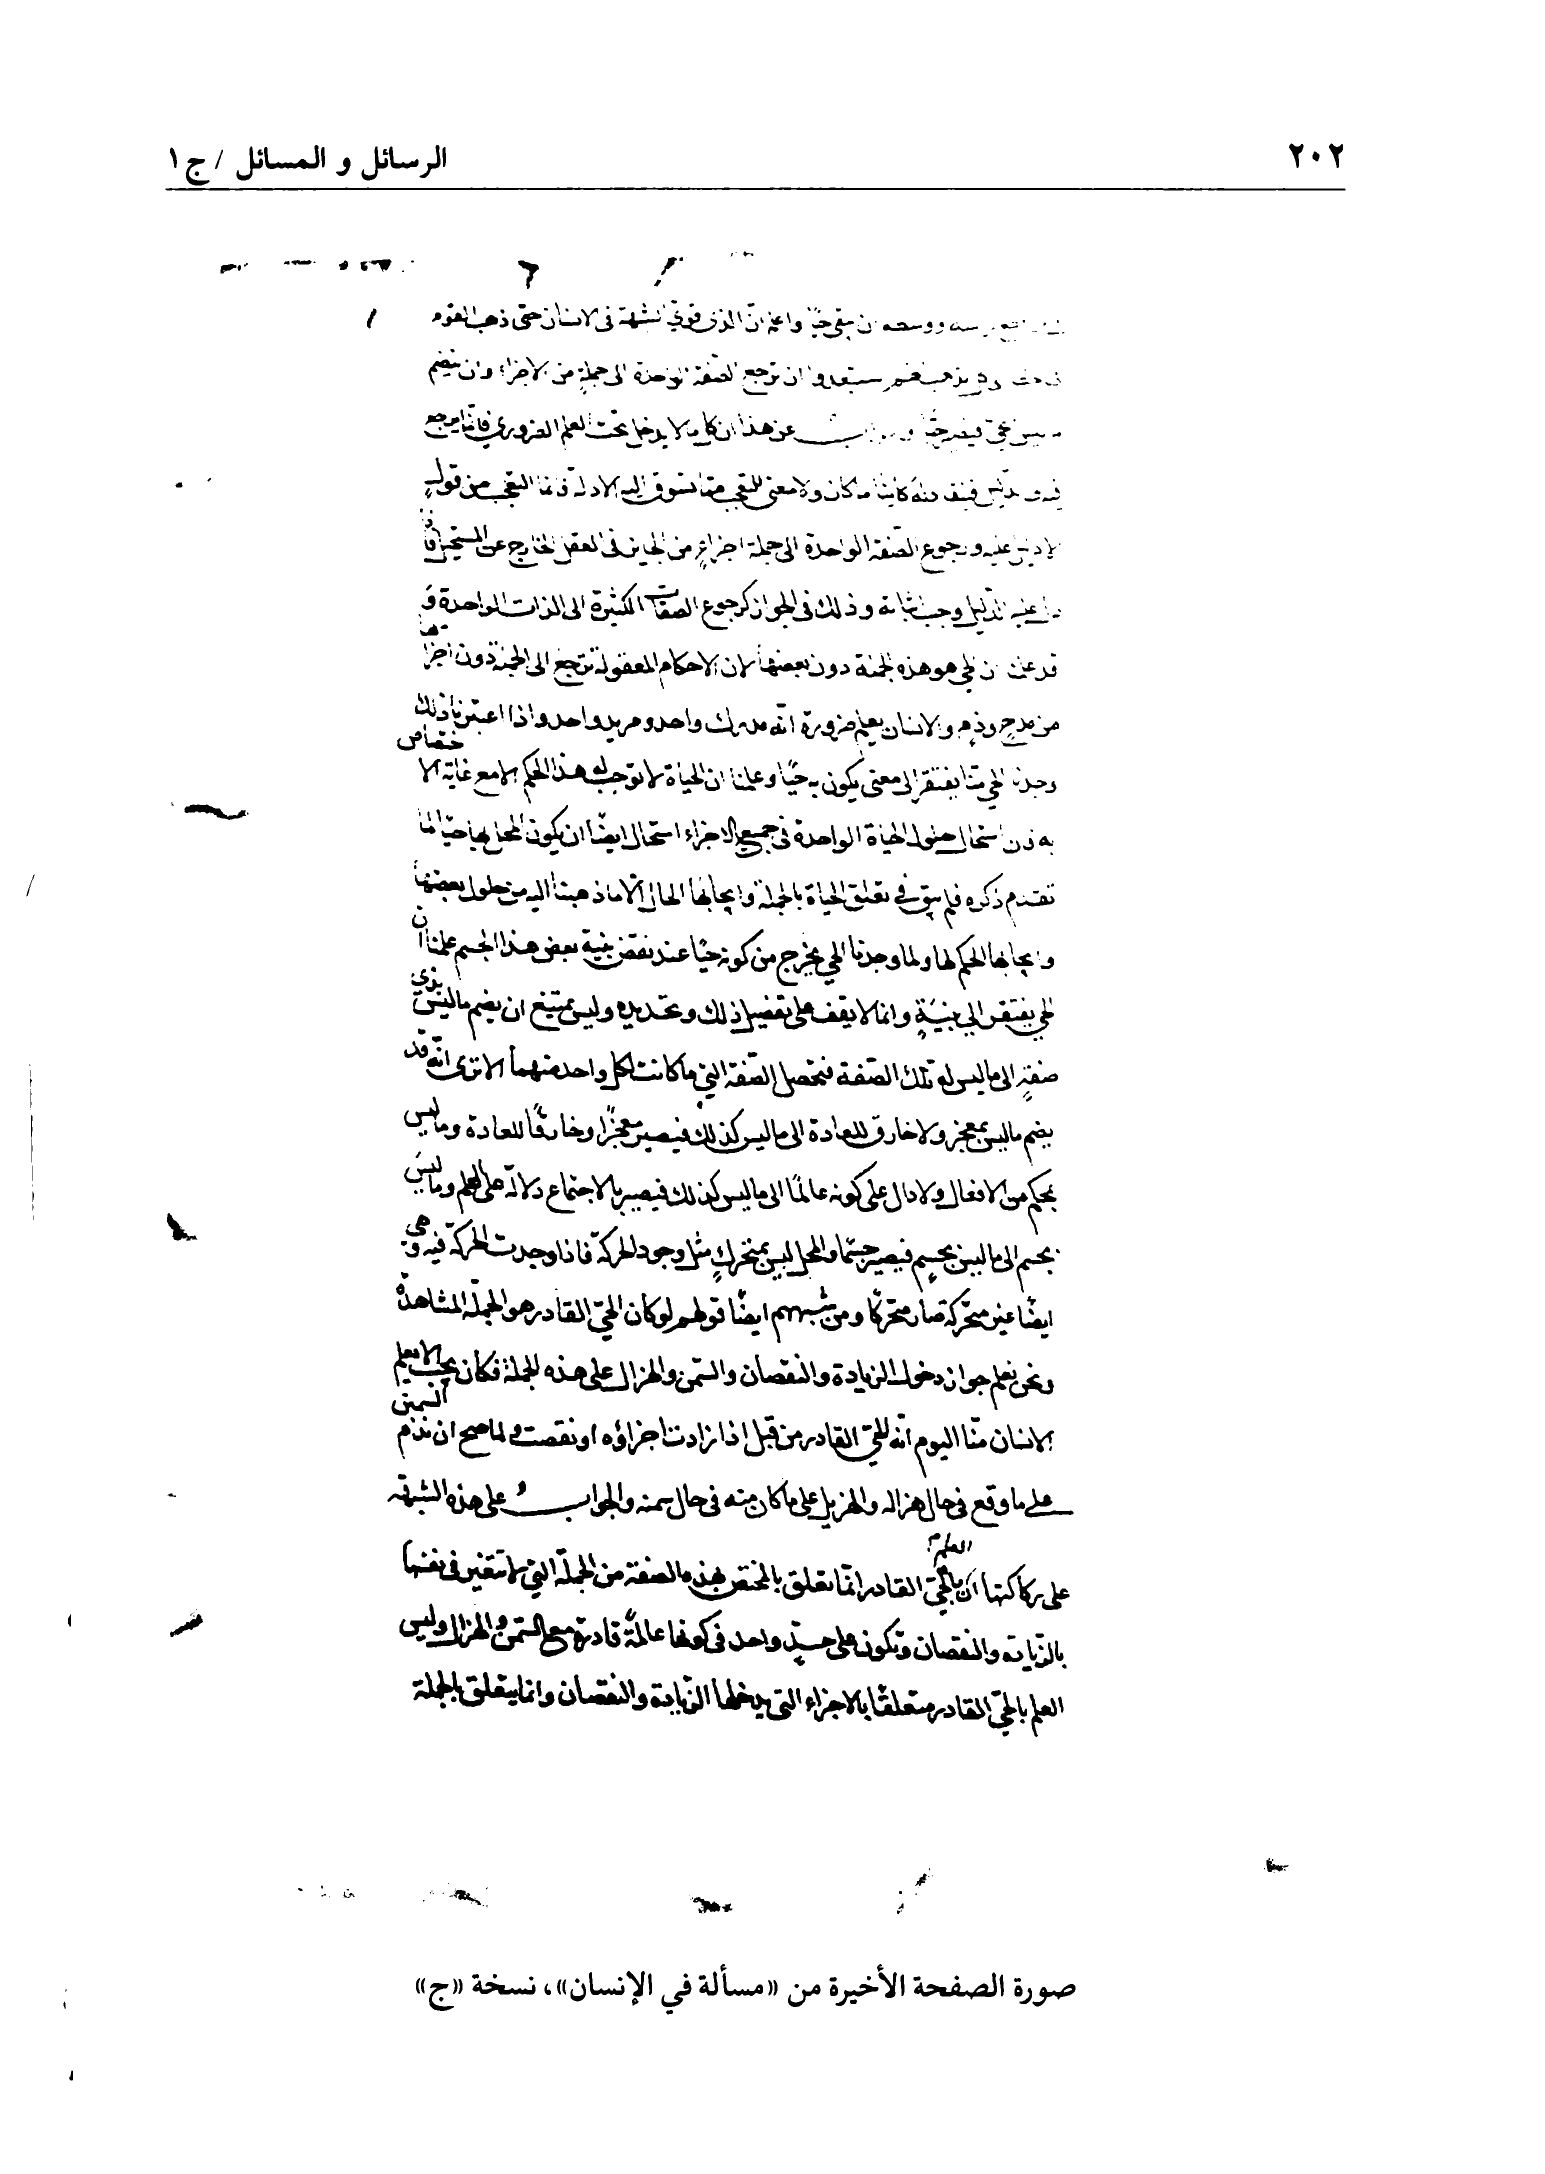 ٢٠٢
الرسائل و المسائل / ج ١
ان يبقى حيّا واعلم انّ الذى قوّي الشبهة فى الانسان حتى ذهب القوم
ان ترجع الصفة الواحدة الى جملة من الاجزاء وان ينضم
فيصير حيّا عن هذا ان كل ما لا يدخل تحت العلم الضروري فانّما يرجع
كائنا ما كان ولا معنى للتعجب ممّا تسوق اليه الادلة فانما التعجب من قول
لا دليل عليه ورجوع الصّفة الواحدة الى جملة اجزاءٍ من الجايز فى العقل الخارج عن المستحيل فاذ
دل عليه الدّليل وجب اثباته وذلك فى الجواز كرجوع الصفات الكثيرة الى الذات الواحدة و
قد علمنا ان الحي هو هذه الجملة دون بعضها لان الاحكام المعقولة ترجع الى الجملة دون اجزائها
من مدحٍ وذمٍ والانسان يعلم ضرورة انّه مدرك واحد ومريد واحد واذا اعتبرنا ذلك
وجدنا الحي منّا يفتقر الى معنى يكون به حيًّا وعلمنا ان الحياة لا توجب له هذا الحكم الا مع غاية الاختصاص
به فان استحال حلول الحياة الواحدة فى جميع الاجزاء استحال ايضًا ان يكون المحل بها حيّا لما
تقدم ذكره فلم يبق فى تعلق الحياة بالجملة وايجابها الحال الّا ما ذهبنا اليه من حلول بعضها
وايجابها الحكم لها ولما وجدنا الحي يخرج من كونه حيًا عند نقض بنية بعض هذا الجسم علمنا ان
الحي يفتقر الى بنيةٍ وانما لا يقف على تفصيل ذلك وتحديده وليس بممتنع ان يضم ما ليس بذى
صفةٍ الى ما ليس له تلك الصّفة فتحصل الصّفة التي ما كانت لكل واحد منهما الا ترى انّه قد
يضم ما ليس بمعجز ولا خارق للعادة الى ما ليس كذلك فيصير معجزًا وخارقًا للعادة وما ليس
بحكم من الافعال ولا دال على كونه عالمًا الى ما ليس كذلك فيصير بالاجتماع دلالة على العلم وما ليس
بجسم الى ما ليس بجسمٍ فيصير جسمًا والمحل ليس بمتحركٍ مثل وجود الحركة فاذا وجدت الحركة فيه وهي
ايضًا غير متحرّكة صار متحركًا ومن شبههم ايضًا قولهم لو كان الحيّ القادر هو الجملة المشاهدة
ونحن نعلم جواز دخول الزيادة والنقصان والسّمن والهزال على هذه الجملة فكان يجب الا يعلم
الانسان منّا اليوم انّه الحيّ القادر من قبل اذا زادت اجزاؤه او نقصت ولما صح ان نذم السمين
على ما وقع فى حال هزاله والهزيل على ما كان منه فى حال سمنه والجواب على هذه الشبهة
على ركاكتها انّ العلم بالحيّ القادر انّما تعلق بالمختص بهذه الصفة من الجملة التي لا تتغير فى نفسها
بالزيادة والنقصان وتكون على حدٍ واحد فى كونها عالمةً قادرة مع السّمن والهزال وليس
العلم بالحيّ القادر متعلقًا بالاجزاء التى يدخلها الزّيادة والنقصان وانما يتعلق بالجملة
صورة الصفحة الأخيرة من «مسألة في الإنسان»، نسخة «ج»